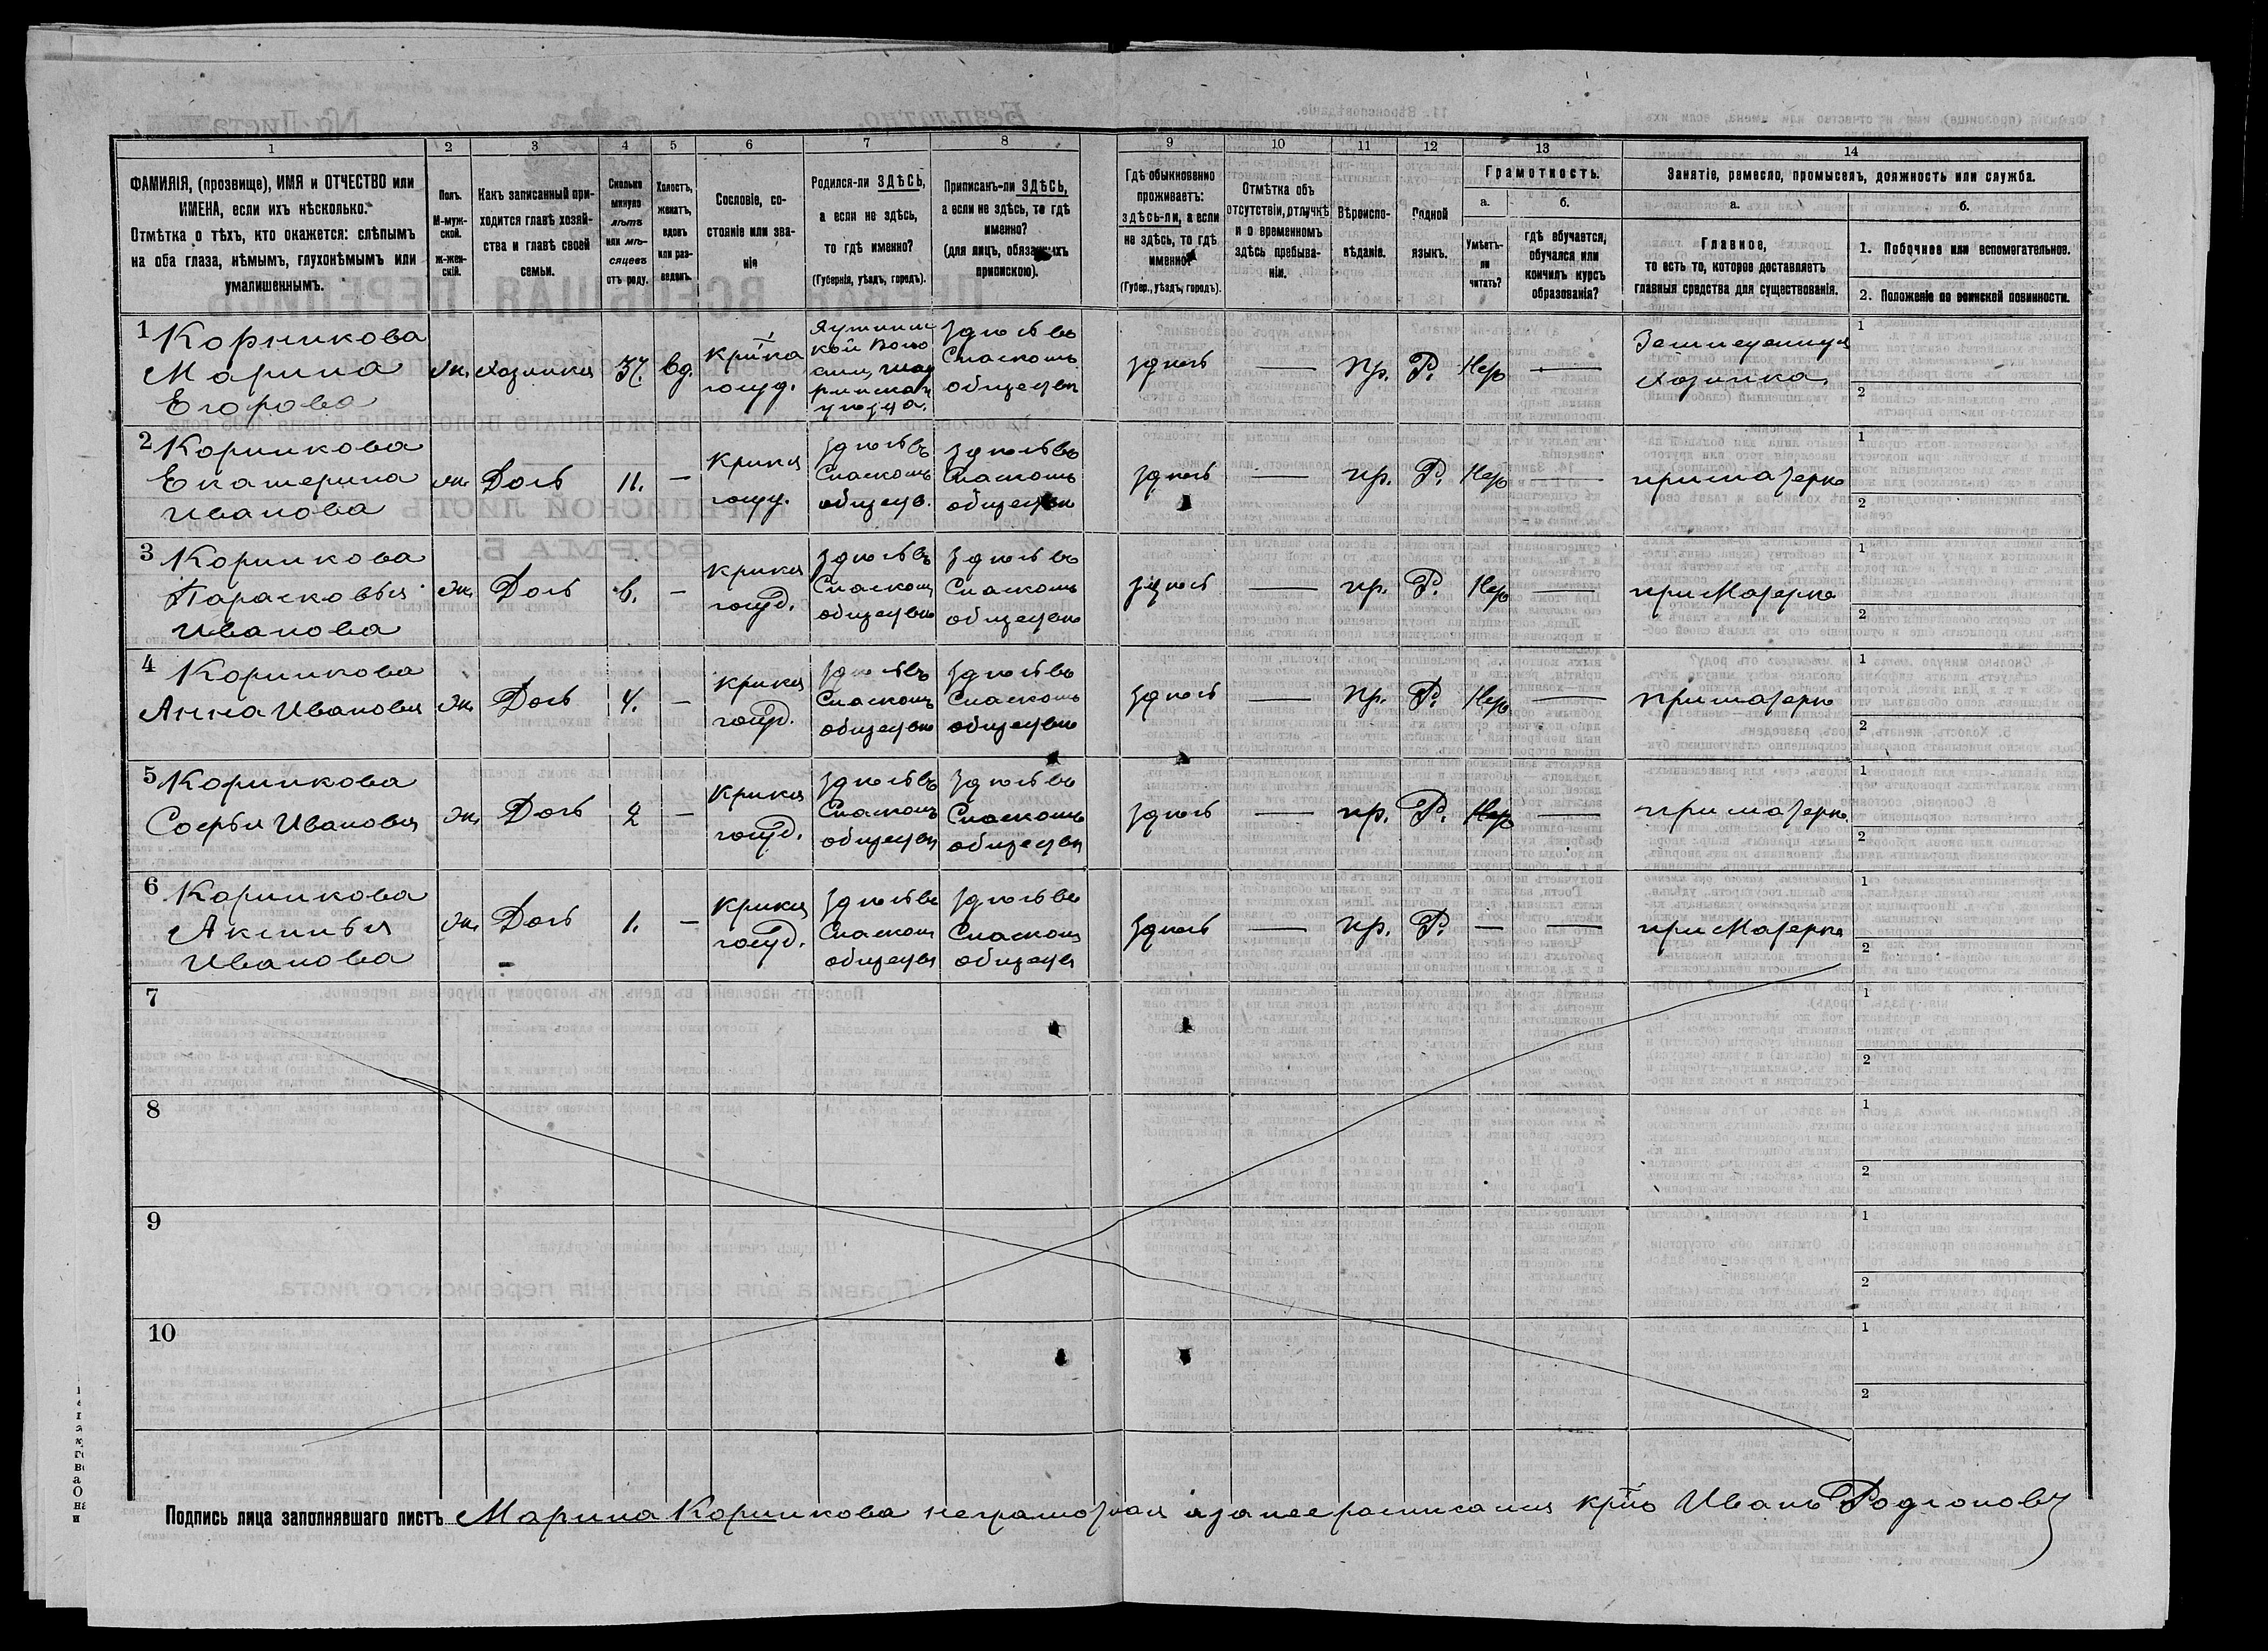 1 2 3 4 5 6 7 8 9 10 11 12 13 14
ФАМИЛІЯ, (прозвище), ИМЯ и ОТЧЕСТВО или
ИМЕНА, если ихъ нѣсколько.
Отмѣтка о тѣхъ, кто окажется: слѣпымъ
на оба глаза, нѣмымъ, глухонѣмымъ или
умалишеннымъ.
Полъ.
М-муж-
ской.
ж-жен-
скій.
Какъ записанный при-
ходится главѣ хозяй-
ства и главѣ своей
семьи.
Сколько
минуло
лѣтъ
или мѣ-
сяцевъ
отъ роду.
Холостъ,
женатъ,
вдовъ
или раз-
веденъ.
Сословіе, со-
стояніе или зва-
ніе
Родился-ли ЗДѢСЬ,
а если не здѣсь,
то гдѣ именно?
(Губернія, уѣздъ, городъ).
Приписанъ-ли ЗДѢСЬ,
а если не здѣсь, то гдѣ
именно?
(для лицъ, обязанныхъ
припискою).
Гдѣ обыкновенно
проживаетъ:
здѣсь-ли, а если
не здѣсь, то гдѣ
именно?
(Губер., уѣздъ, городъ).
Отмѣтка объ
отсутствіи, отлучкѣ
и о временномъ
здѣсь пребыва-
ніи.
Вѣроиспо-
вѣданіе.
Родной
языкъ.
Грамотность.
а. б.
Умѣетъ-
ли
читать?
гдѣ обучается,
обучался или
кончилъ курсъ
образованія?
Занятіе, ремесло, промыселъ, должность или служба.
а. б.
Главное,
то есть то, которое доставляетъ
главныя средства для существованія.
1. Побочное или вспомогательное.
2. Положеніе по воинской повинности.
1 Корникова
Марина
Егорова
ж. хозяйка 37. вд.
кр҃ка
госуд.
здѣсь въ
Спаскомъ
обществѣ
здѣсь — пр. Р. Нѣт —
Земледелица
хозяйка
1
2
2 Корникова
Екатерина
Иванова
ж. Дочь 11. —
крика
госуд.
здѣсь въ
Спаскомъ
обществ.
здѣсь въ
Спаскомъ
обществѣ
здѣсь — пр. Р. Нѣт — при матерѣ
1
2
3 Корникова
Парасковья
Иванова
ж. Дочь — крика
госуд.
здѣсь въ
Спаском
обществѣ
здѣсь въ
Спаскомъ
обществѣ
здѣсь — пр. Р. Нѣт — при Матерѣ
1
2
4 Корникова
Анна Иванова
ж. Дочь 4. — крика
госуд.
здѣсь въ
Спаскомъ
обществѣ
здѣсь въ
Спаскомъ
обществѣ
здѣсь — пр. Р. Нѣт — при матерѣ
1
2
5 Корникова
Софья Иванова
ж. Дочь 2 — крика
госуд.
здѣсь въ
Спаскомъ
обществѣ
здѣсь въ
Спаскомъ
обществѣ
здѣсь — пр. Р. Нѣт — при матерѣ
1
2
6 Корникова
Аксинья
Иванова
ж. Дочь 1. — крика
госуд.
здѣсь въ
Спаском
обществѣ
здѣсь въ
Спаском
обществѣ
здѣсь — пр. Р. — — при Матерѣ
1
2
7
1
2
8
1
2
9
1
2
10
1
2
Подпись лица заполнявшаго листъ Марина Корникова неграмотная а за нее росписался кр҃нъ Иванъ Родіоновъ